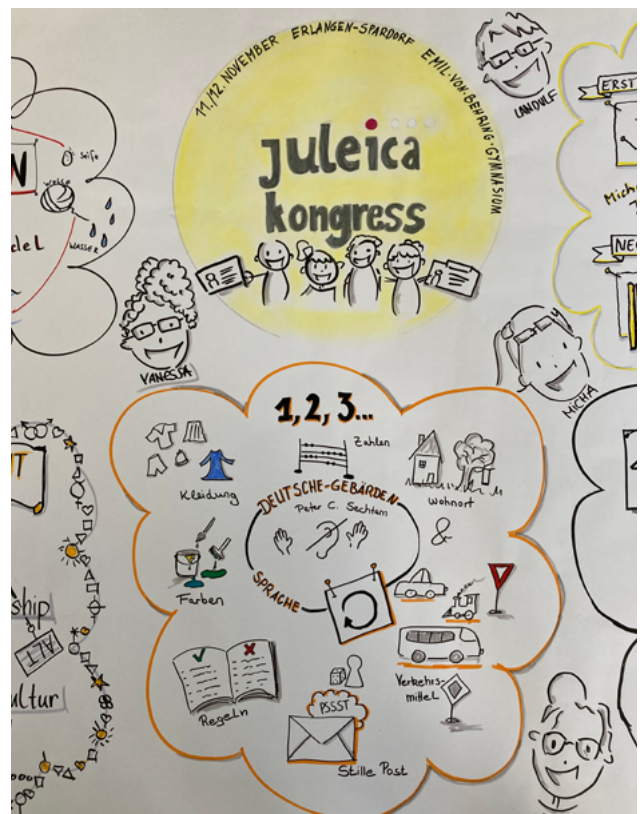 11./12. NOVEMBER ERLANGEN-SPARDORF EMIL-VON-BEHRING-GYMNASIUM
juleica
kongress
LANDULF
ERST
Micha
NE
Seife
Wolle
WASSER
N
del
VANESSA
MICHA
1, 2, 3...
Zahlen
Kleidung
Wohnort
DEUTSCHE-GEBÄRDEN
Peter C. Sechtem
SPRACHE
&
Farben
Verkehrs-
mittel
Regeln
PSSST
Stille Post
T
ship
ALT
ultur